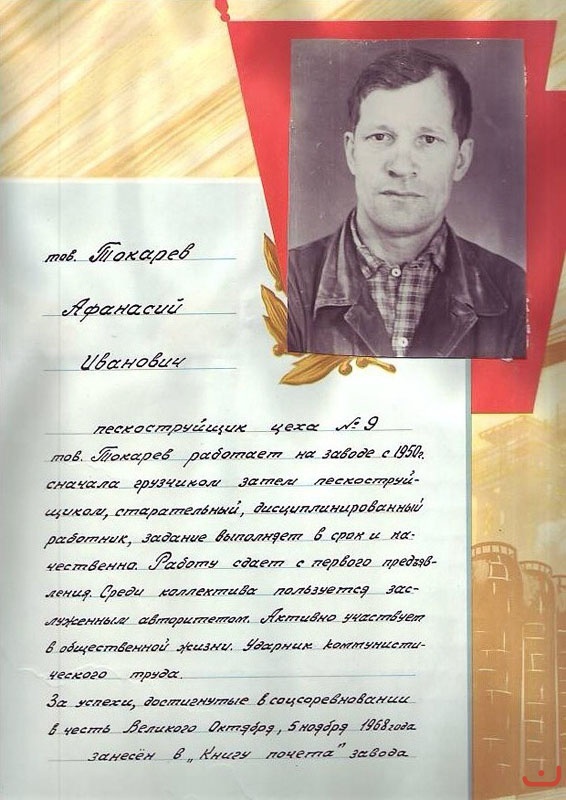 тов. Токарев
Афанасий
Иванович
пескоструйщик цеха № 9
тов. Токарев работает на заводе с 1950г.
сначала грузчиком затем пескоструй-
щиком, старательный, дисциплинированный
работник, задание выполняет в срок и ка-
чественно. Работу сдает с первого предъяв-
ления. Среди коллектива пользуется зас-
луженным авторитетом. Активно участвует
в общественной жизни. Ударник коммунисти-
ческого труда.
За успехи, достигнутые в соцсоревновании
в честь Великого Октября, 5 ноября 1968 года
занесён в „Книгу почета" завода